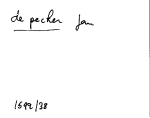 de pecker Jan
1592/38